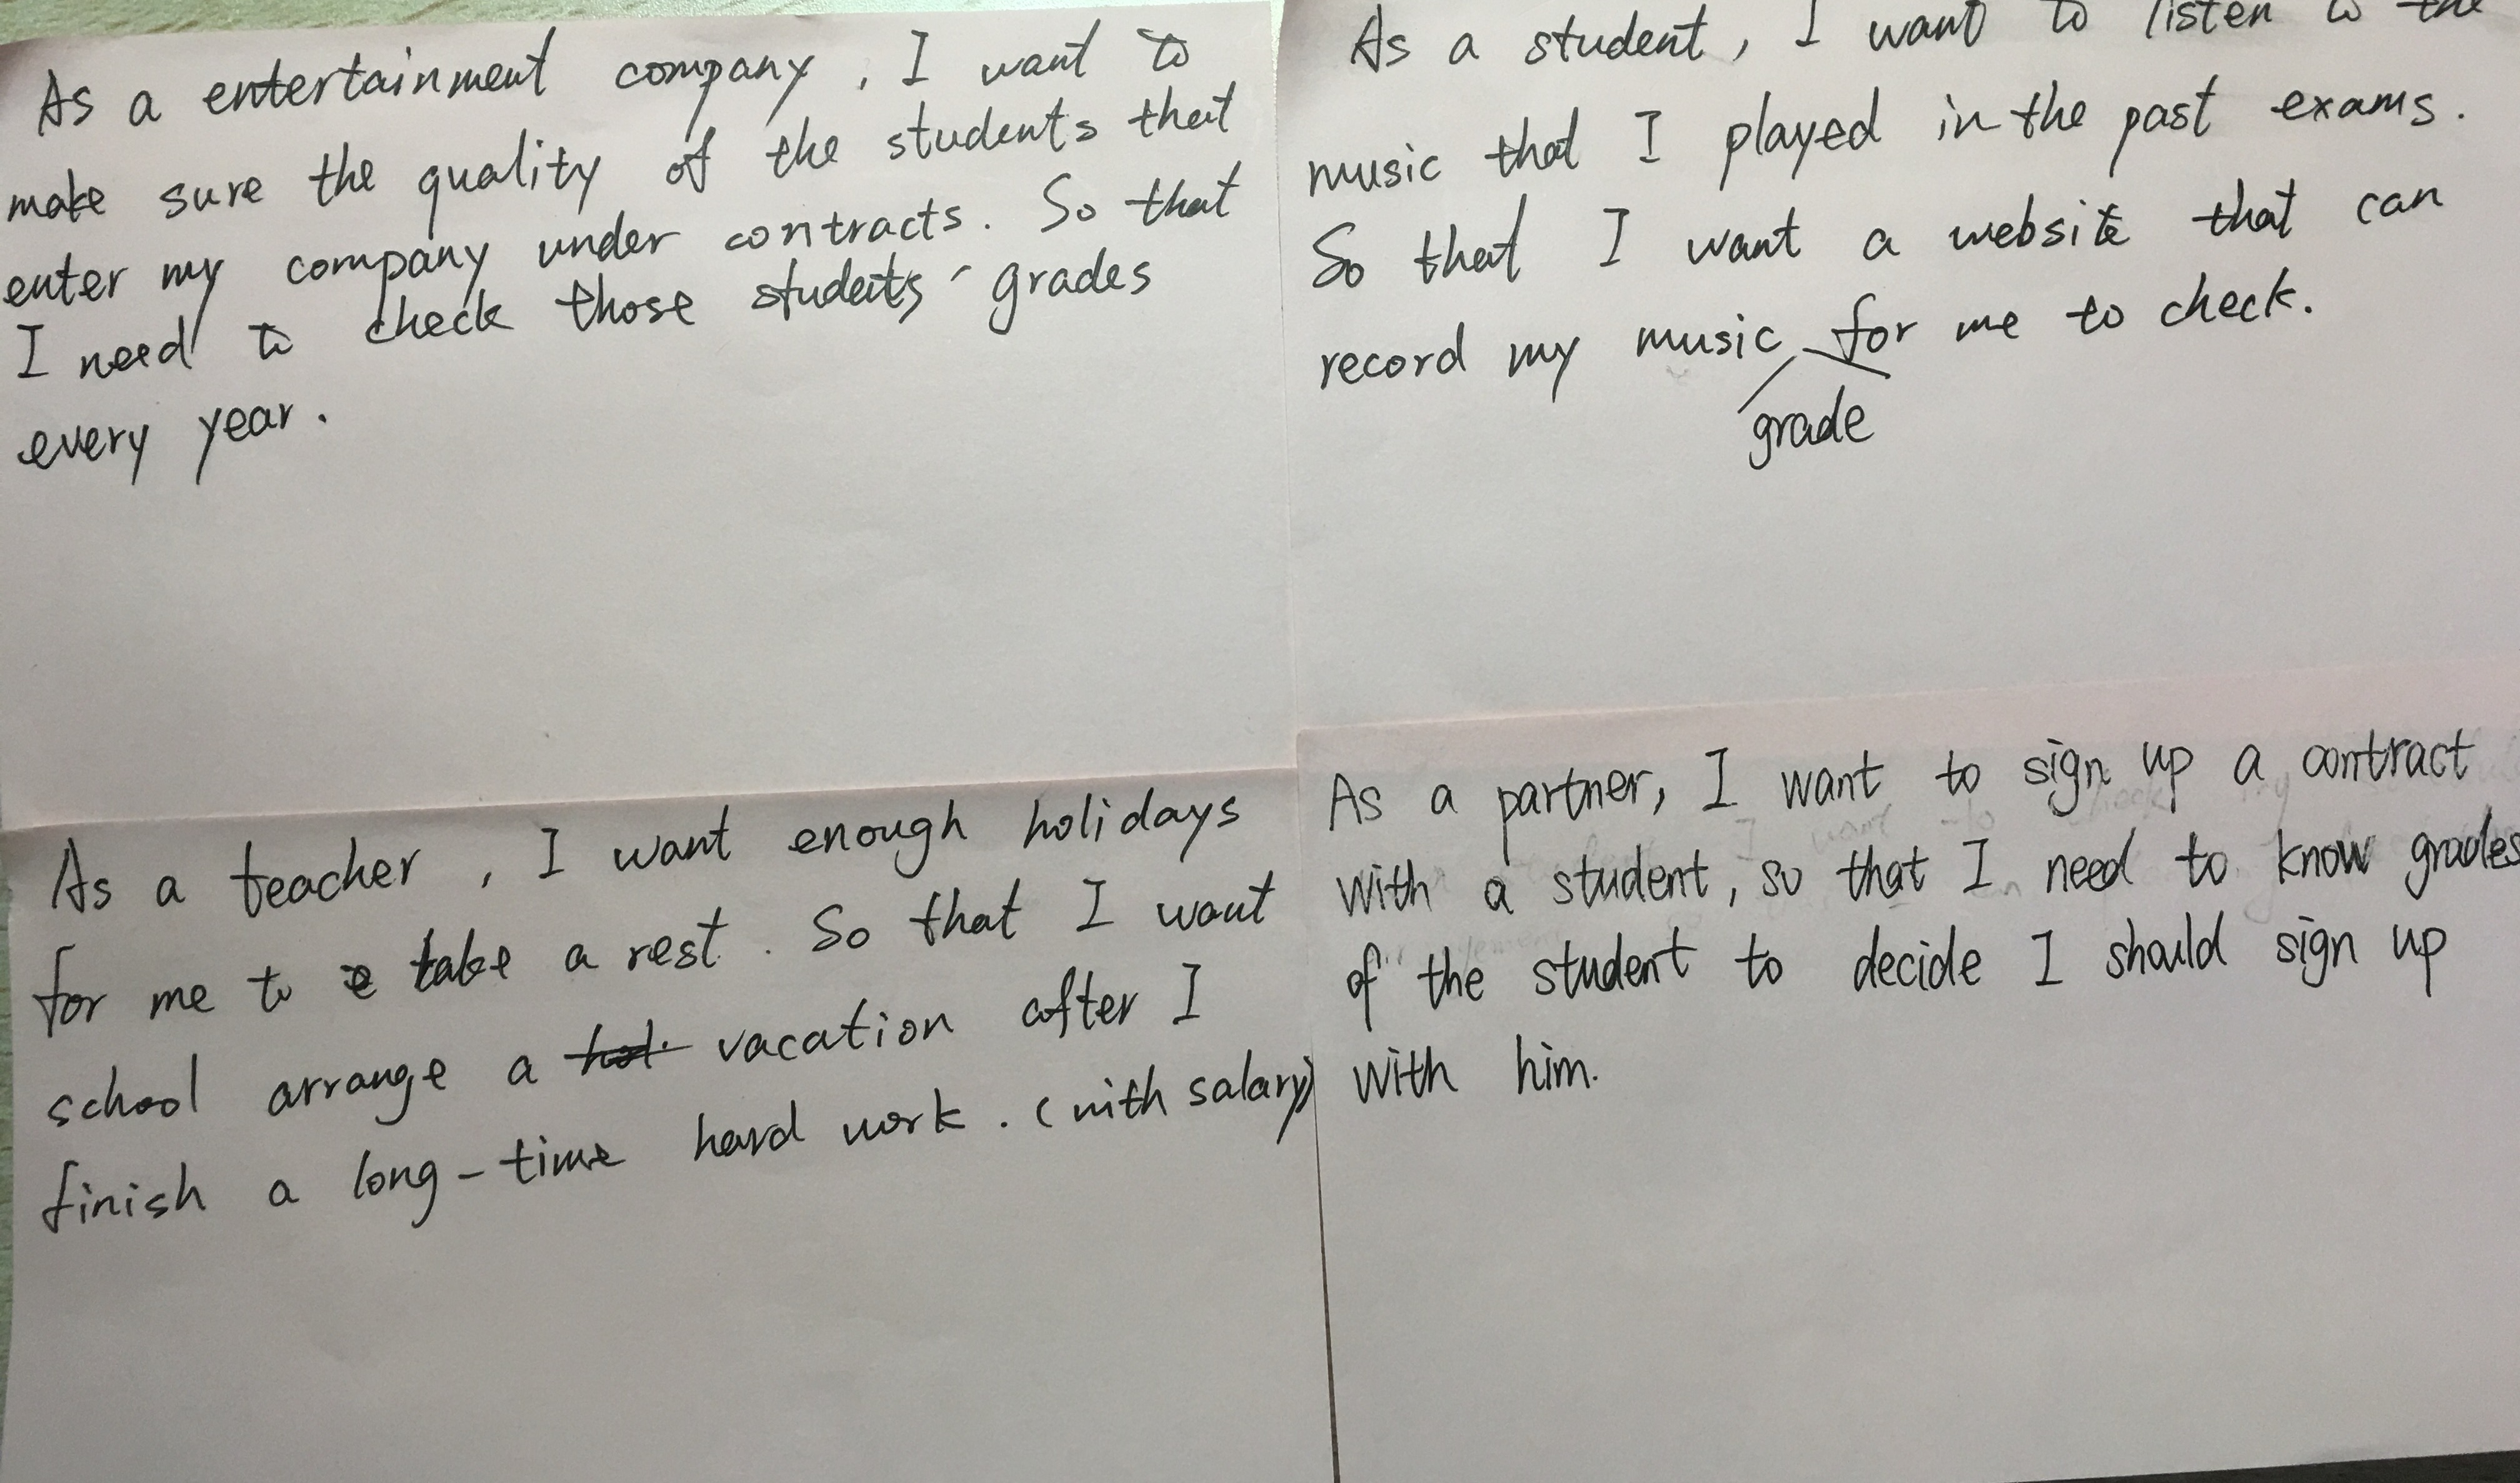 As a entertainment company, I want to
make sure the quality of the students that
enter my company under contracts. So that
I need to check those students' grades
every year.
As a student, I want to listen to the
music that I played in the past exams.
So that I want a website that can
record my music for me to check.
grade
As a teacher, I want enough holidays
for me to take a rest. So that I want
school arrange a vacation after I
finish a long-time hard work. (with salary)
As a partner, I want to sign up a contract
with a student, so that I need to know grades
of the student to decide I should sign up
with him.